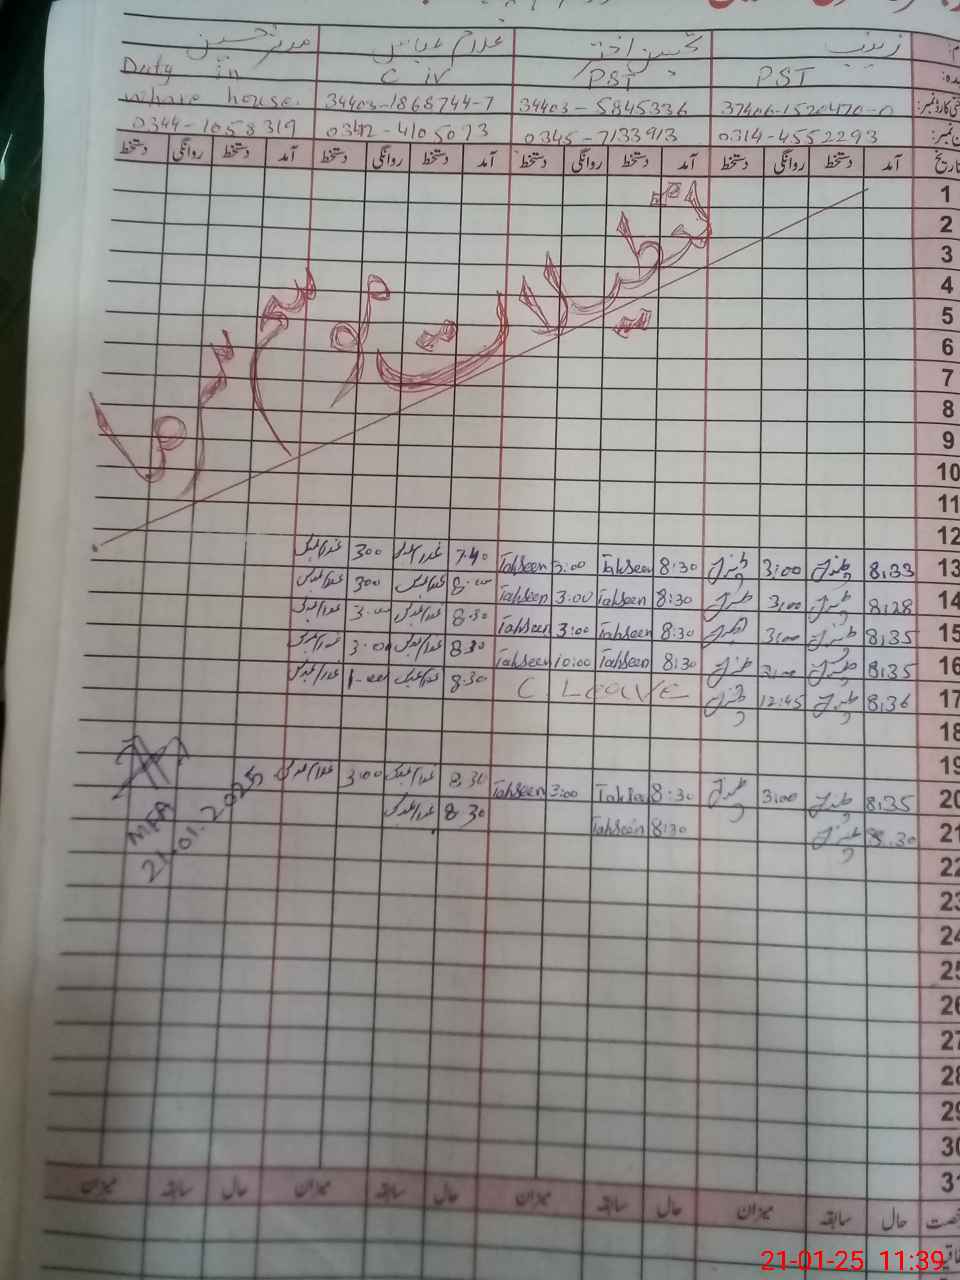 زینب تحسین اختر غلام عباس مدثر حسین
PST PST C iv Duty in
37406-1520470-0 34403-5845336 34403-1868744-7 whare house.
0314-4552293 0345-7133913 0342-4105073 0344-1058319
تاریخ آمد دستخط روانگی دستخط آمد دستخط روانگی دستخط آمد دستخط روانگی دستخط آمد دستخط روانگی دستخط
1
2
3
4
5
6
7
8
9
10
11
12
تعطیلات موسم سرما
13 8:33 3:00 8:30 Tahseen 3:00 Tahseen 7:40 غلام عباس 300 غلام عباس
14 8:28 3:00 8:30 Tahseen 3:00 Tahseen 8:00 غلام عباس 300 غلام عباس
15 8:35 3:00 8:30 Tahseen 3:00 Tahseen 8:30 غلام عباس 3:00 غلام عباس
16 8:35 8:30 Tahseen 10:00 Tahseen 8:30 غلام عباس 3:00 غلام عباس
17 8:36 12:45 C Leave 8:30 غلام عباس 1:00 غلام عباس
18
19
20 8:35 3:00 8:30 3:00 Tahseen 8:30 غلام عباس 3:00 غلام عباس
21 8:30 8:30 Tahseen 8:30 غلام عباس
MEA
21.01.2025
22
23
24
25
26
27
28
29
30
31
حال سابقہ میزان حال سابقہ میزان حال سابقہ میزان حال سابقہ میزان
21-01-25 11:39